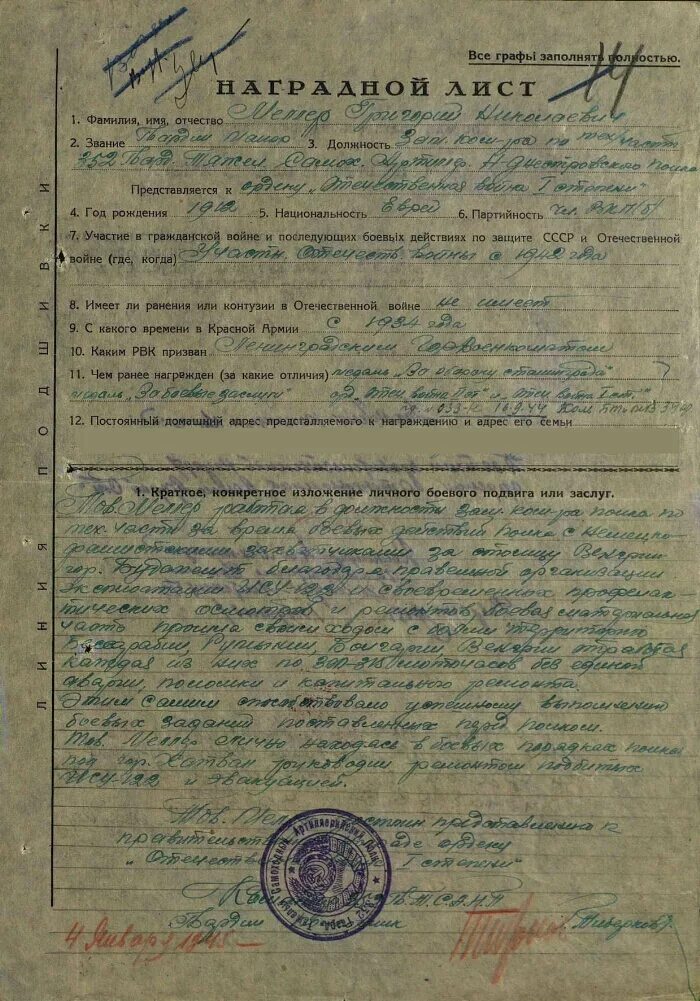 Все графы заполнять полностью.
14
НАГРАДНОЙ ЛИСТ
1. Фамилия, имя, отчество Меллер Григорий Николаевич
2. Звание Гвардии майор 3. Должность Зам. ком-ра по тех/части
352 Гвард. Тяжел. Самох. Артиллер. Днестровского полка
Представляется к ордену „Отечественная война I степени"
4. Год рождения 1912 5. Национальность Еврей 6. Партийность чл. ВКП/б/
7. Участие в гражданской войне и последующих боевых действиях по защите СССР и Отечественной
войне (где, когда) Участн. Отечеств. войны с 1942 года
8. Имеет ли ранения или контузии в Отечественной войне не имеет
9. С какого времени в Красной Армии с 1934 года
10. Каким РВК призван Ленинградским Горвоенкоматом
11. Чем ранее награжден (за какие отличия) медаль „За оборону Сталинграда"
медаль „За боевые заслуги" орд. „Отеч. война II ст" и „Отеч. война I ст."
16.9.44
12. Постоянный домашний адрес представляемого к награждению и адрес его семьи
ЛИНИЯ ПОДШИВКИ
1. Краткое, конкретное изложение личного боевого подвига или заслуг.
Тов. Меллер работая в должности зам. ком-ра полка по
тех. части за время боевых действий полка с немецко-
фашистскими захватчиками за столицу Венгрии
гор. Будапешт благодаря правельной организации
эксплоатации ИСУ-122 и своевременных профелак-
тических осмотров и ремонтов боевая материальная
часть прошла своим ходом с боями территорию
Бессарабии, Румынии, Болгарии, Венгрии
каждая из них по 300-315 моточасов без единой
аварии, поломки и капитального ремонта.
Этим самым способствовало успешному выполнению
боевых заданий поставленных перед полком.
Тов. Меллер лично находясь в боевых порядках полка
под гор. Хатван руководил ремонтом подбитых
ИСУ-122 и эвакуацией.
Тов. Мел достоин представления к
правительст награде ордену
„Отечестве I степени"
Гвардии
4 Января 1945